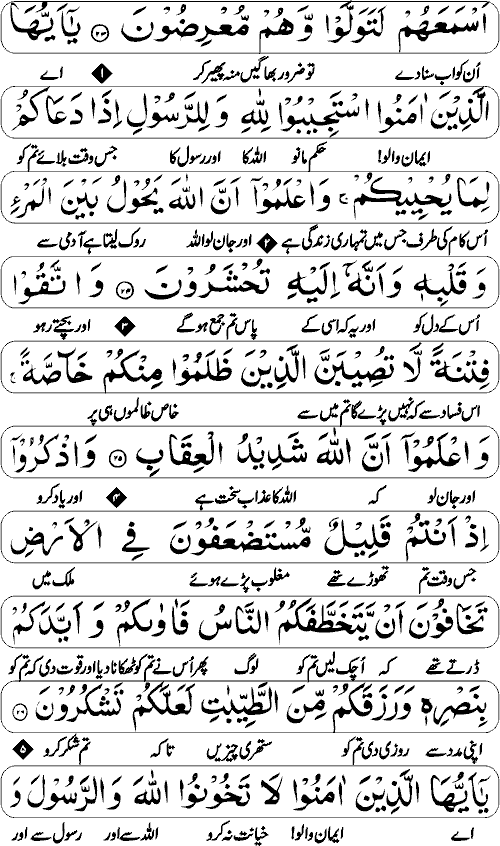 اَسْمَعَهُمْ لَتَوَلَّوْا وَّهُمْ مُّعْرِضُوْنَ ﴿۲۳﴾ يٰۤاَيُّهَا
اُن کو اب سنا دے تو ضرور بھاگیں منہ پھیر کر ۱ اے
الَّذِيْنَ اٰمَنُوا اسْتَجِيْبُوْا لِلّٰهِ وَ لِلرَّسُوْلِ اِذَا دَعَاكُمْ
ایمان والو! حکم مانو اللہ کا اور رسول کا جس وقت بلائے تم کو
لِمَا يُحْيِيْكُمْ ۚ وَ اعْلَمُوْۤا اَنَّ اللّٰهَ يَحُوْلُ بَيْنَ الْمَرْءِ
اُس کام کی طرف جس میں تمہاری زندگی ہے ۲ اور جان لو اللہ روک لیتا ہے آدمی سے
وَ قَلْبِهٖ وَ اَنَّهٗۤ اِلَيْهِ تُحْشَرُوْنَ ﴿۲۴﴾ وَ اتَّقُوْا
اُس کے دل کو اور یہ کہ اسی کے پاس تم جمع ہو گے ۳ اور بچتے رہو
فِتْنَةً لَّا تُصِيْبَنَّ الَّذِيْنَ ظَلَمُوْا مِنْكُمْ خَآصَّةً ۚ
اس فساد سے کہ نہیں پڑے گا تم میں سے خاص ظالموں ہی پر
وَ اعْلَمُوْۤا اَنَّ اللّٰهَ شَدِيْدُ الْعِقَابِ ﴿۲۵﴾ وَ اذْكُرُوْۤا
اور جان لو کہ اللہ کا عذاب سخت ہے ۴ اور یاد کرو
اِذْ اَنْتُمْ قَلِيْلٌ مُّسْتَضْعَفُوْنَ فِي الْاَرْضِ
جس وقت تم تھوڑے تھے مغلوب پڑے ہوئے ملک میں
تَخَافُوْنَ اَنْ يَّتَخَطَّفَكُمُ النَّاسُ فَاٰوٰىكُمْ وَ اَيَّدَكُمْ
ڈرتے تھے کہ اُچک لیں تم کو لوگ پھر اُس نے تم کو ٹھکانا دیا اور قوت دی کہ تم کو
بِنَصْرِهٖ وَ رَزَقَكُمْ مِّنَ الطَّيِّبٰتِ لَعَلَّكُمْ تَشْكُرُوْنَ ﴿۲۶﴾
اپنی مدد سے روزی دی تم کو ستھری چیزیں تاکہ تم شکر کرو ۵
يٰۤاَيُّهَا الَّذِيْنَ اٰمَنُوْا لَا تَخُوْنُوا اللّٰهَ وَ الرَّسُوْلَ وَ
اے ایمان والو! خیانت نہ کرو اللہ سے اور رسول سے اور